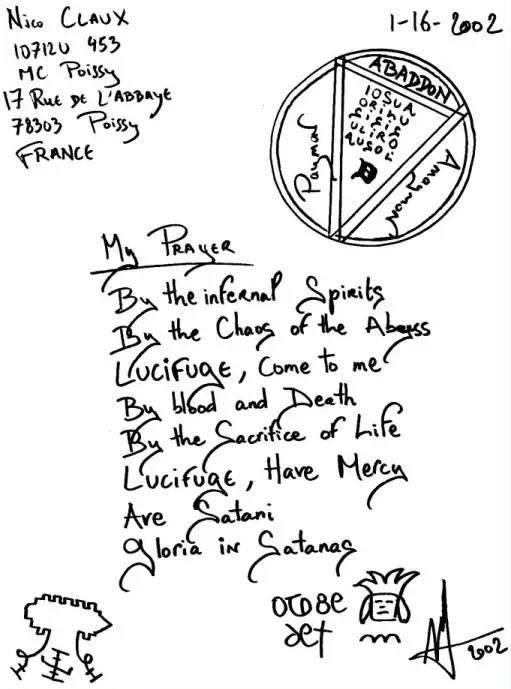 Nico CLAUX
10712U 453
MC Poissy
17 Rue DE L'ABBAYE
78303 Poissy
FRANCE
1-16-2002
ABADDON
IOSUA
Paymon
Amaymon
My PRAYER
By the infernal Spirits
By the Chaos of the Abyss
LUCIFUGE, Come to me
By blood and Death
By the Sacrifice of Life
Lucifuge, Have Mercy
Ave Satani
Gloria in Satanas
2002